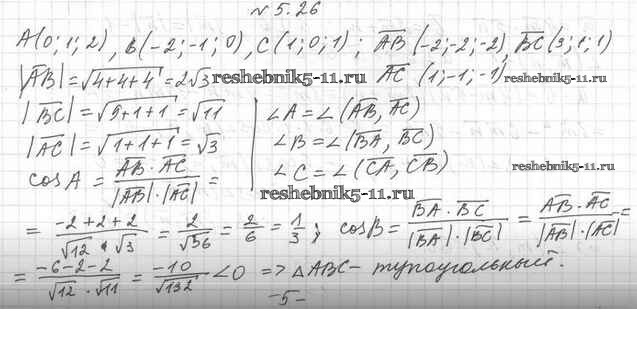 № 5.26
A(0; 1; 2), B(-2; -1; 0), C(1; 0; 1); AB(-2; -2; -2), BC(3; 1; 1)
|AB| = √4+4+4 = 2√3 reshebnik5-11.ru AC (1; -1; -1) reshebnik5-11.ru
|BC| = √9+1+1 = √11 ∠A = ∠(AB, AC)
|AC| = √1+1+1 = √3 ∠B = ∠(BA, BC)
∠C = ∠(CA, CB) reshebnik5-11.ru
cos A = AB · AC / |AB| · |AC| =
reshebnik5-11.ru
= -2+2+2 / √12 · √3 = 2/√36 = 2/6 = 1/3; cos B = BA · BC / |BA| · |BC| = AB · AC / |AB| · |AC| =
= -6-2-2 / √12 · √11 = -10/√132 < 0 => △ABC - тупоугольный.
-5-